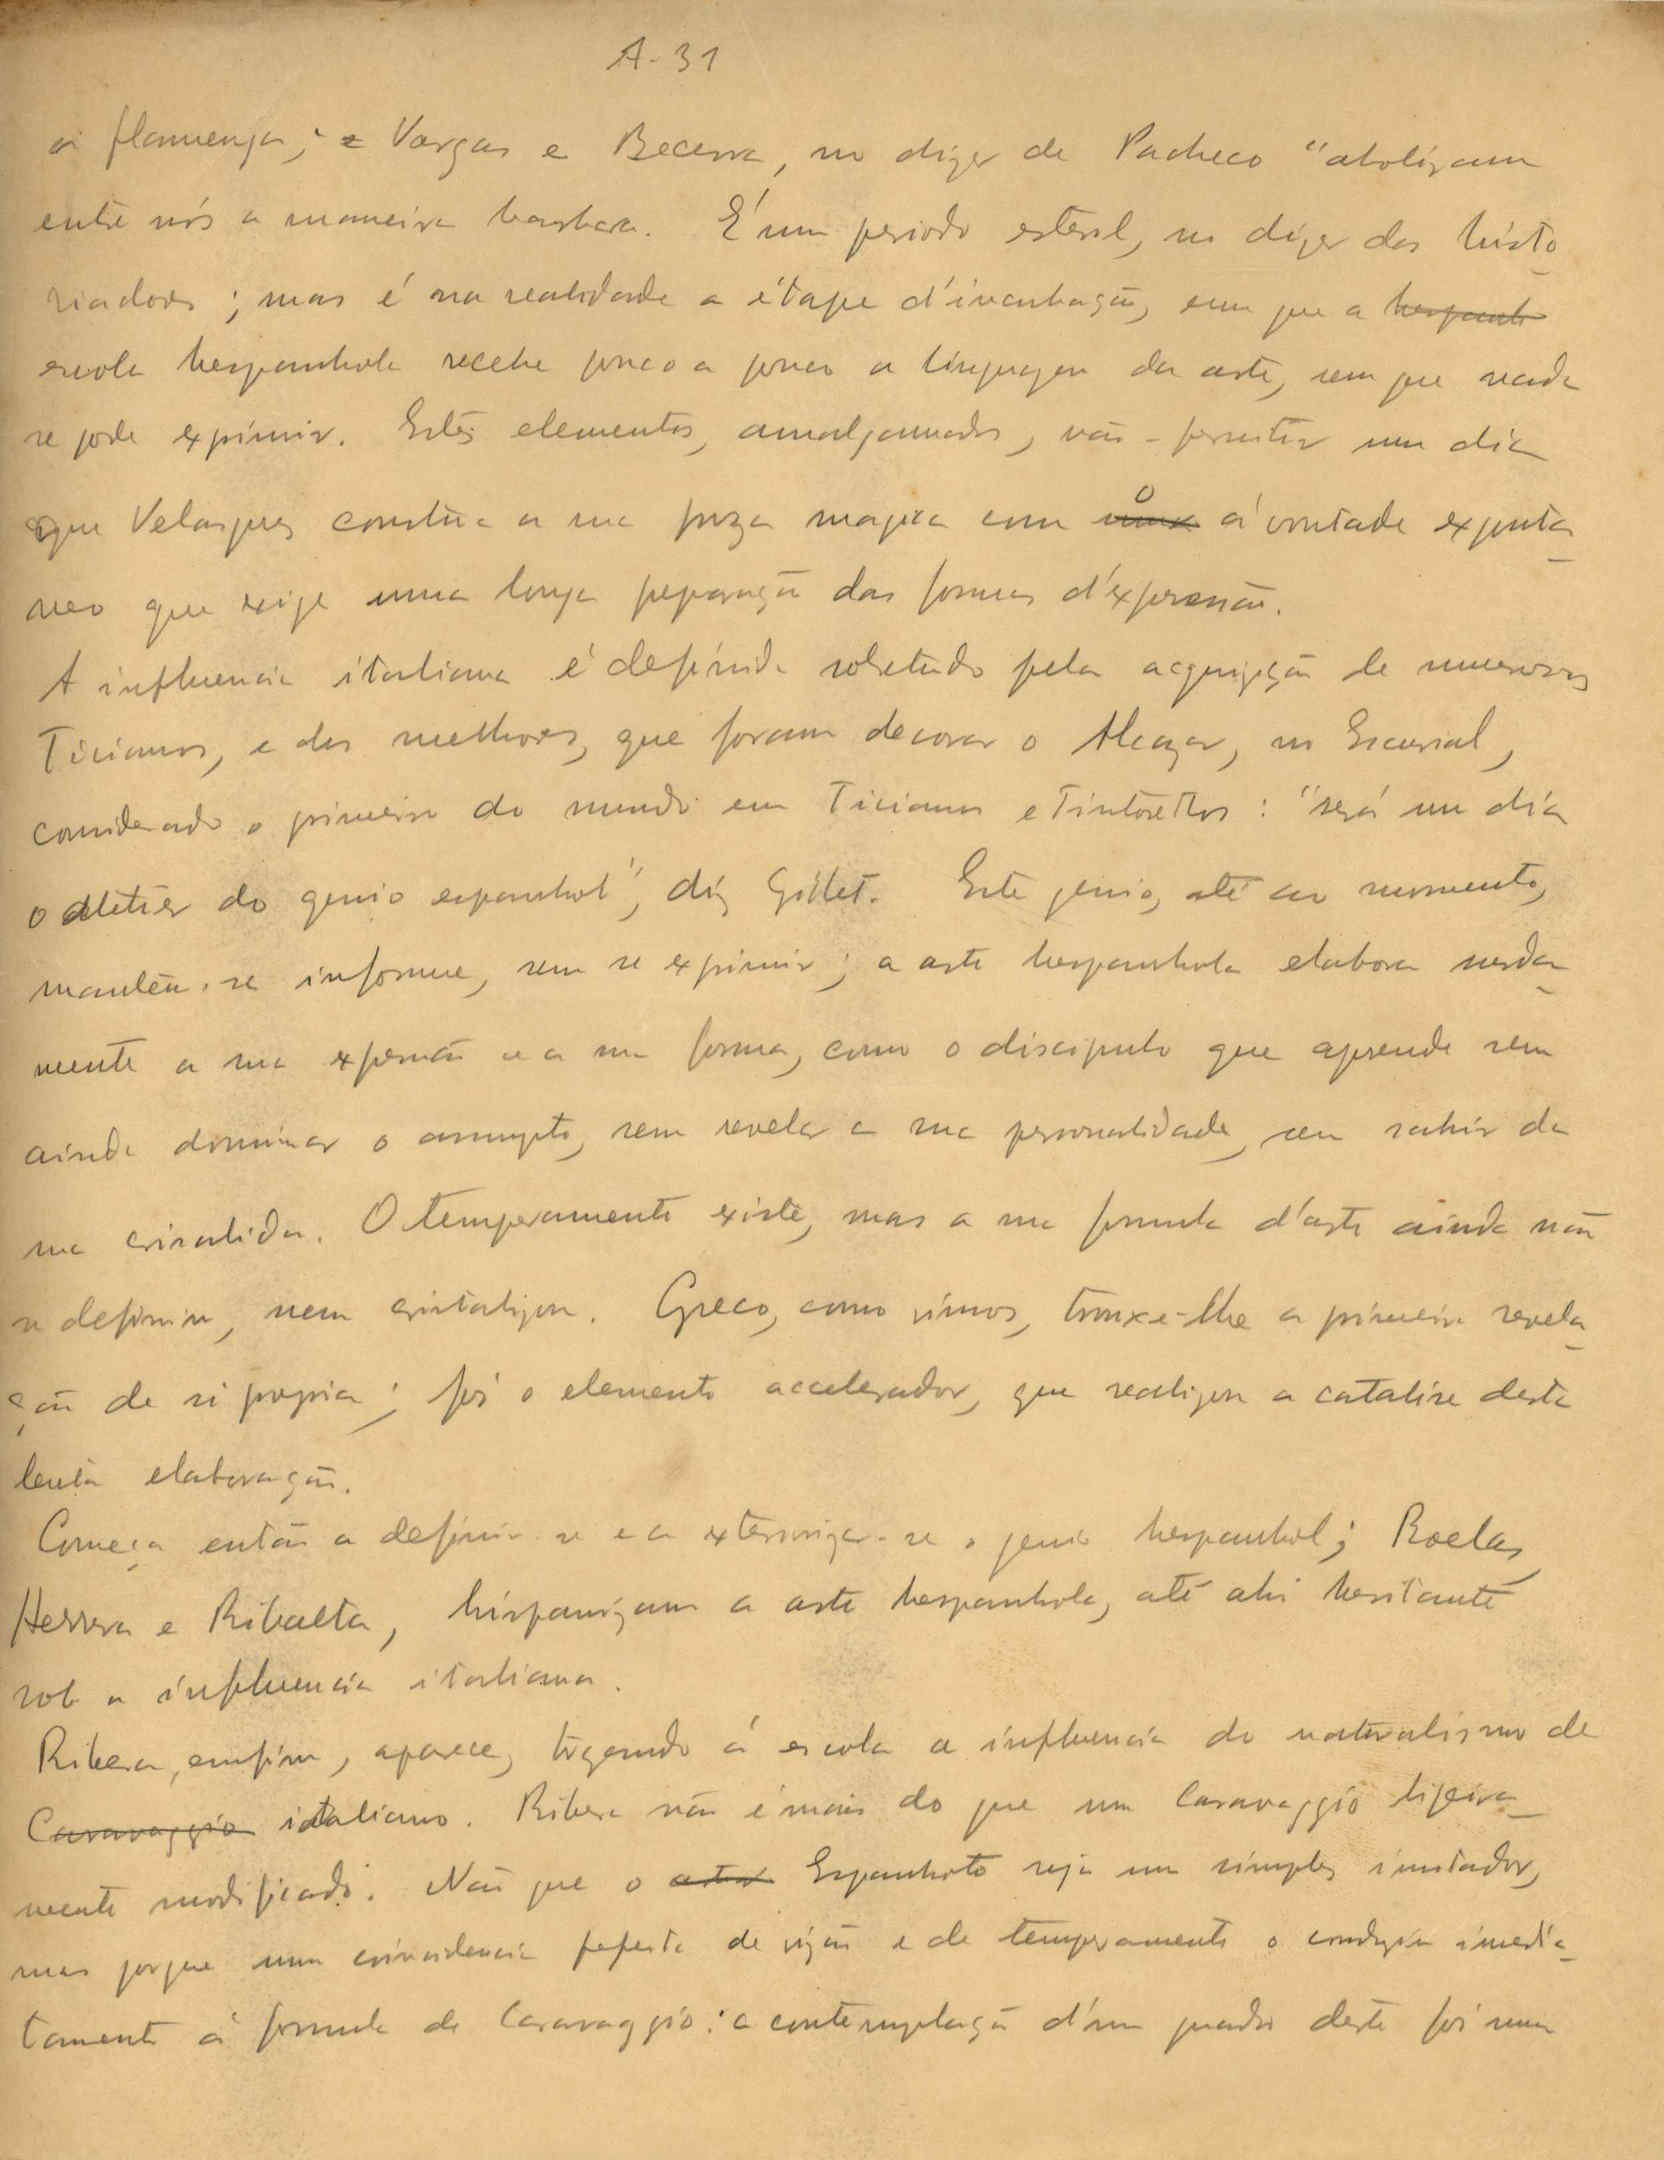 A-31
á flamenga; e Vargas e Becerra, no dizer de Pacheco "abolizam
entre nós a maneira barbara. É um periodo esteril, no dizer dos histo-
riadores; mas é na realidade a étape d'incubação, em que a hespanh
escola hespanhola recebe pouco a pouco a linguagem da arte, sem que nada
se pode exprimir. Estes elementos, amalgamados, vão-permitir um dia
que Velasquez construa a sua proza magica com o á vontade expontâ-
neo que exige uma longa preparação das formas d'expressão.
A influencia italiana é definida sobretudo pela acquizição de numerosos
Ticianos, e dos melhores, que foram decorar o Alcazar, no Escurial,
considerado o primeiro do mundo em Ticianos e Tintorettos: "será um dia
o atelier do genio espanhol", diz Gillet. Este genio, até ao momento,
mantém-se informe, sem se exprimir; a arte hespanhola elabora
mente a sua expressão e a sua forma, como o discipulo que aprende sem
ainda dominar o assumpto, sem revelar a sua personalidade, sem sahir da
sua crisalida. O temperamento existe, mas a sua formula d'arte ainda não
se definiu, nem cristalizou. Greco, como vimos, trouxe-lhe a primeira revela-
ção de si propria; foi o elemento accelerador, que realizou a catalise desta
lenta elaboração.
Começa então a definir-se e a exteriorizar-se o genio hespanhol; Roelas,
Herrera e Ribalta, hispanizam a arte hespanhola, até ahi hesitante
sob a influencia italiana.
Ribera, emfim, aparece, trazendo á escola a influencia do naturalismo de
Caravaggio italiano. Ribera não é mais do que um Caravaggio ligeira-
mente modificado. Não que o Espanholeto seja um simples imitador,
mas porque uma coincidencia perfeita de vizão e de temperamento o conduziu imedia-
tamente á formula de Caravaggio: a contemplação d'um quadro deste foi uma